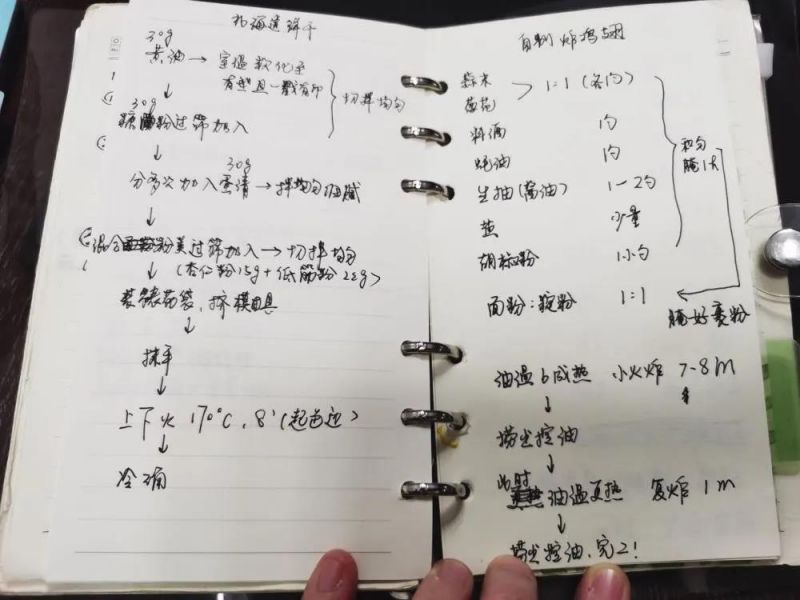 北海道饼干
30g
黄油→室温软化至
有型且一戳有印
切拌均匀
30g
糖粉过筛加入
30g
分多次加入蛋清→拌均匀细腻
混合粉类过筛加入→切拌均匀
(杏仁粉15g+低筋粉22g)
装裱花袋,挤模具
抹平
上下火170℃,8'(起色边)
冷
自制炸鸡翅
葱花
1:1(各1勺)
料酒 1勺
蚝油 1勺
生抽(酱油) 1-2勺
盐 少量
胡椒粉 1小勺
和匀
腌1h
面粉:淀粉 1:1
腌好裹粉
油温6成热 小火炸 7-8m
捞出控油
此时油温更热 复炸1m
捞出控油,完工!